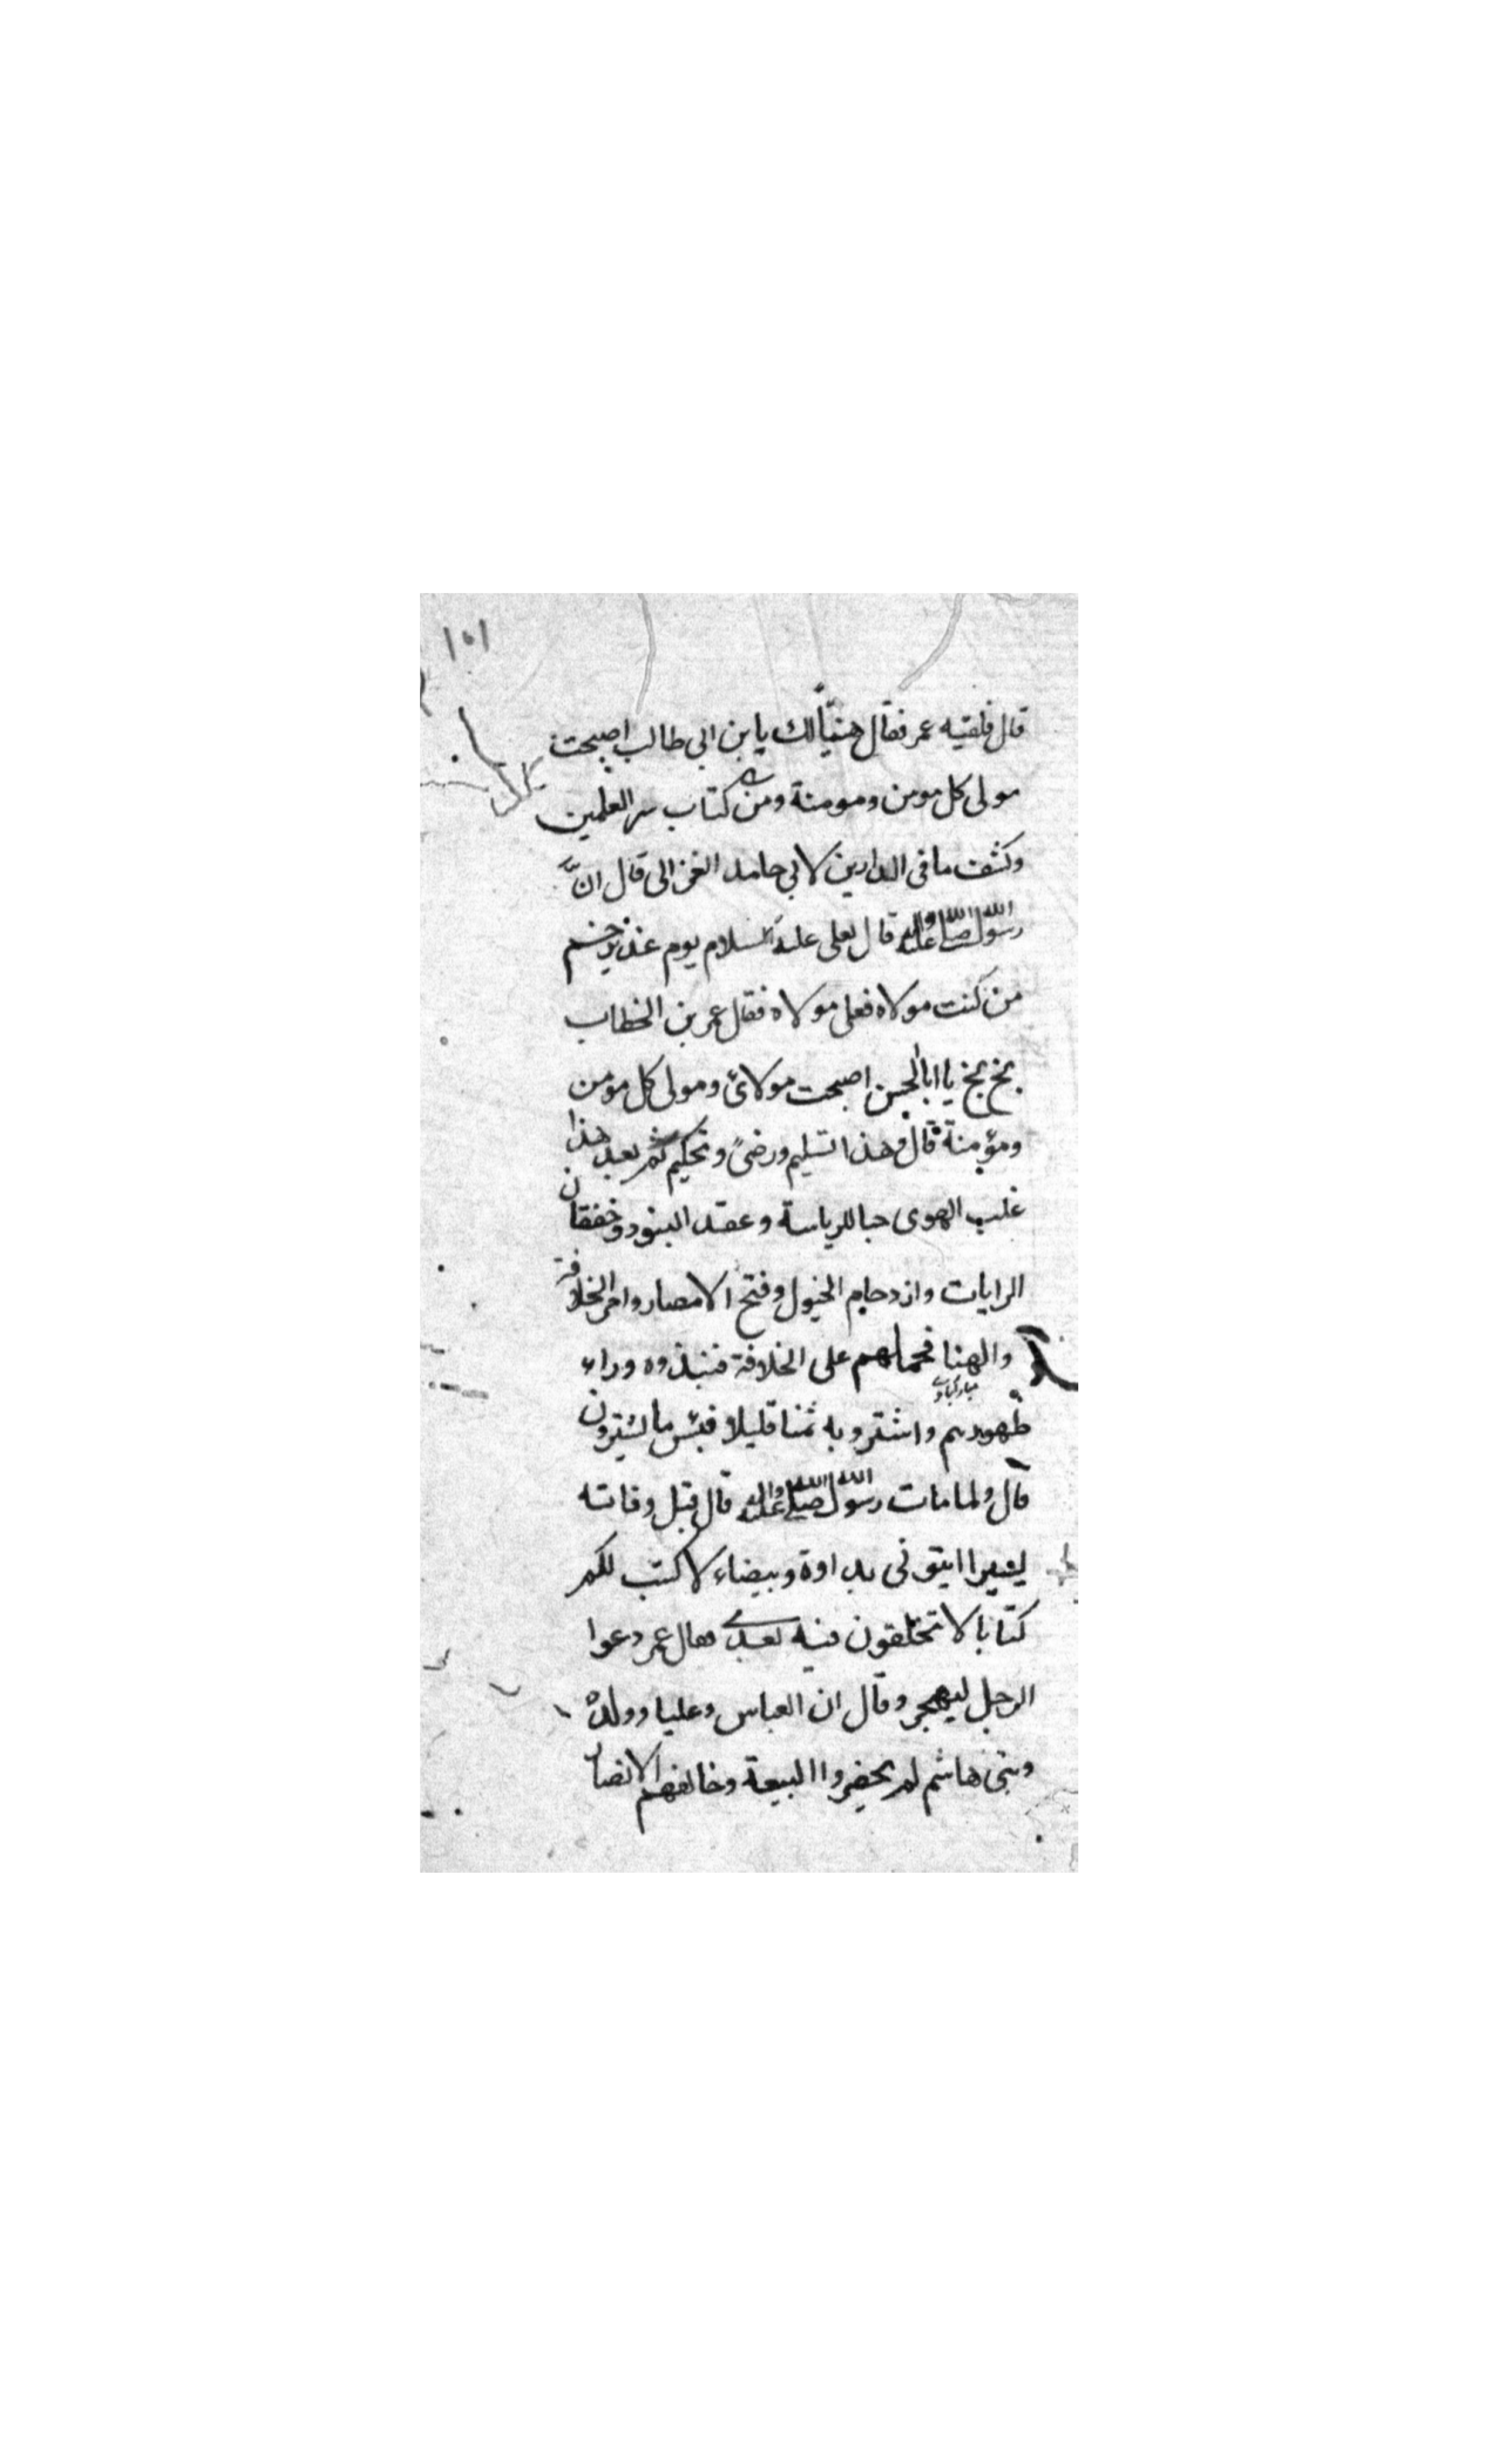 ١٥١
قال فلقيه عمر فقال هنيئًا لك يا بن ابي طالب اصبحت
مولى كل مومن ومومنة ومن كتاب سر العلمين
وكشف ما في الدارين لابي حامد الغزالي قال انّ
رسول الله صلى الله عليه واله قال لعلي عليه السلام يوم غدير خم
من كنت مولاه فعلي مولاه فقال عمر بن الخطاب
بخ بخ يا ابا الحسن اصبحت مولائ ومولى كل مومن
ومؤمنة قال وهذا تسليم ورضىً وتحكيم ثم بعد هذا
غلب الهوى حبا للرياسة وعقد البنود وخفقان
الرايات وازدحام الخيول وفتح الامصار وامر الخلافة
والهنا فحملهم على الخلافة فنبذوه وراء
ظهورهم واشتروبه ثمنا قليلا فبئس ما يشترون
قال ولما مات رسول الله صلى الله عليه واله قال قبل وفاته
يسيرا ايتوني بداوة وبيضاء لاكتب لكم
كتابا لا تختلفون فيه بعدي فقال عمر دعوا
الرجل ليهجر وقال ان العباس وعليا وولده
وبني هاشم لم يحضروا البيعة وخالفهم الانصار